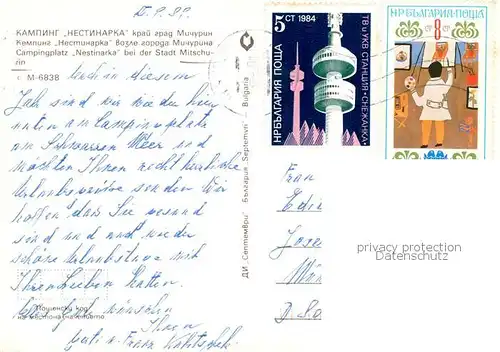 КАМПИНГ „НЕСТИНАРКА" край град Мичурин
Кемпинг „Нестинарка" возле города Мичурина
Campingplatz „Nestinarka" bei der Stadt Mitschurin
С М-6838
Auch in diesem
Jahr sind wir wieder hier
unten am Campingplatz
am Schwarzen Meer und
möchten Ihnen recht herzliche
Urlaubsgrüße senden. Wir
hoffen daß Sie gesund
sind und auch wieder
schöne Urlaubstage mit
Ihren Lieben hatten.
wünschen
Ihnen
u. Franz
Пощенски код
на местоназначението
ДИ „Септември" България „Septemvri" — Bulgaria
5 СТ 1984
НР БЪЛГАРИЯ ПОЩА
ТВ и УКВ СТАНЦИЯ „СНЕЖАНКА"
НР БЪЛГАРИЯ · ПОЩА
СТ 8 СТ
Frau
privacy protection
Datenschutz